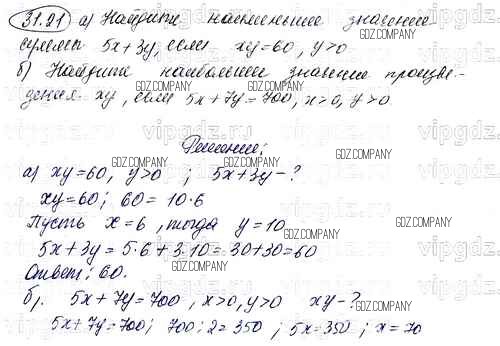 31.21 а) Найдите наименьшее значение
суммы 5x+3y, если xy=60, y>0
б) Найдите наибольшее значение произве-
дения xy, если 5x+7y=700, x>0, y>0.
Решение:
а) xy=60, y>0 ; 5x+3y-?
xy=60; 60=10·6
Пусть x=6, тогда y=10
5x+3y=5·6+3·10=30+30=60
Ответ: 60.
б). 5x+7y=700, x>0, y>0 xy-?
5x+7y=700; 700:2=350; 5x=350; x=70